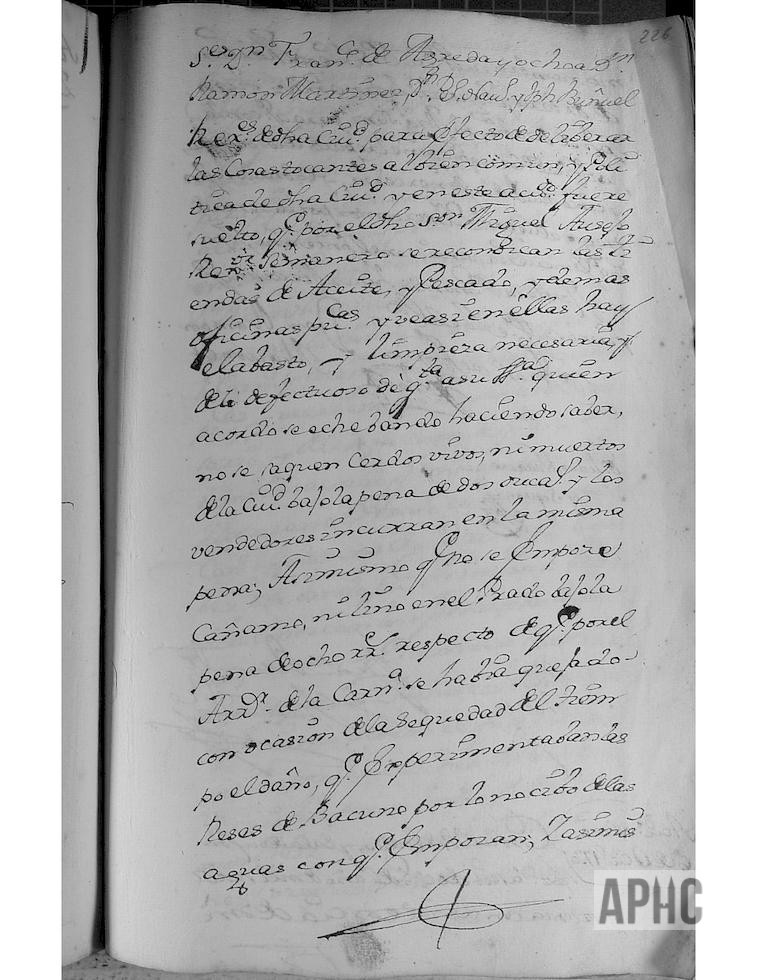 226
S.res D.n Fran.co de Agreda y ochoa D.n
Ramon Martinez, D.n y Jph Buñuel
Rex.s de dha Ciu.d para efecto de deliberar
las Cosas tocantes al bien comun, y Poli
tica de dha Ciu.d y en este acu.do fue re
suelto, q.e por el dho S.or Miguel Ausejo
Rex.or Semanero se reconozcan las ti
endas de Aceite, y Pescado, y demas
oficinas pu.cas y vea si en ellas hay
el abasto, y limpieza necesaria, y
de lo defectuoso de q.ta a su quien
acordo se eche bando haciendo saber,
no se saquen Cerdos vivos, ni muertos
de la Ciu.d bajo la pena de dos duca.s y los
vendedores incurran en la misma
pena; Asimismo q.e no se Empoze
Cañamo, ni lino en el Prado bajo la
pena de ocho rr.s respecto de q.e por el
Arr.or de la Carn.a se habia quejado
con ocasion de la sequedad del tiem
po el daño, q.e Experimentaban las
Reses de Bacuno por lo nocibo de las
aguas con q.e Empozan; Y asimis
APHC